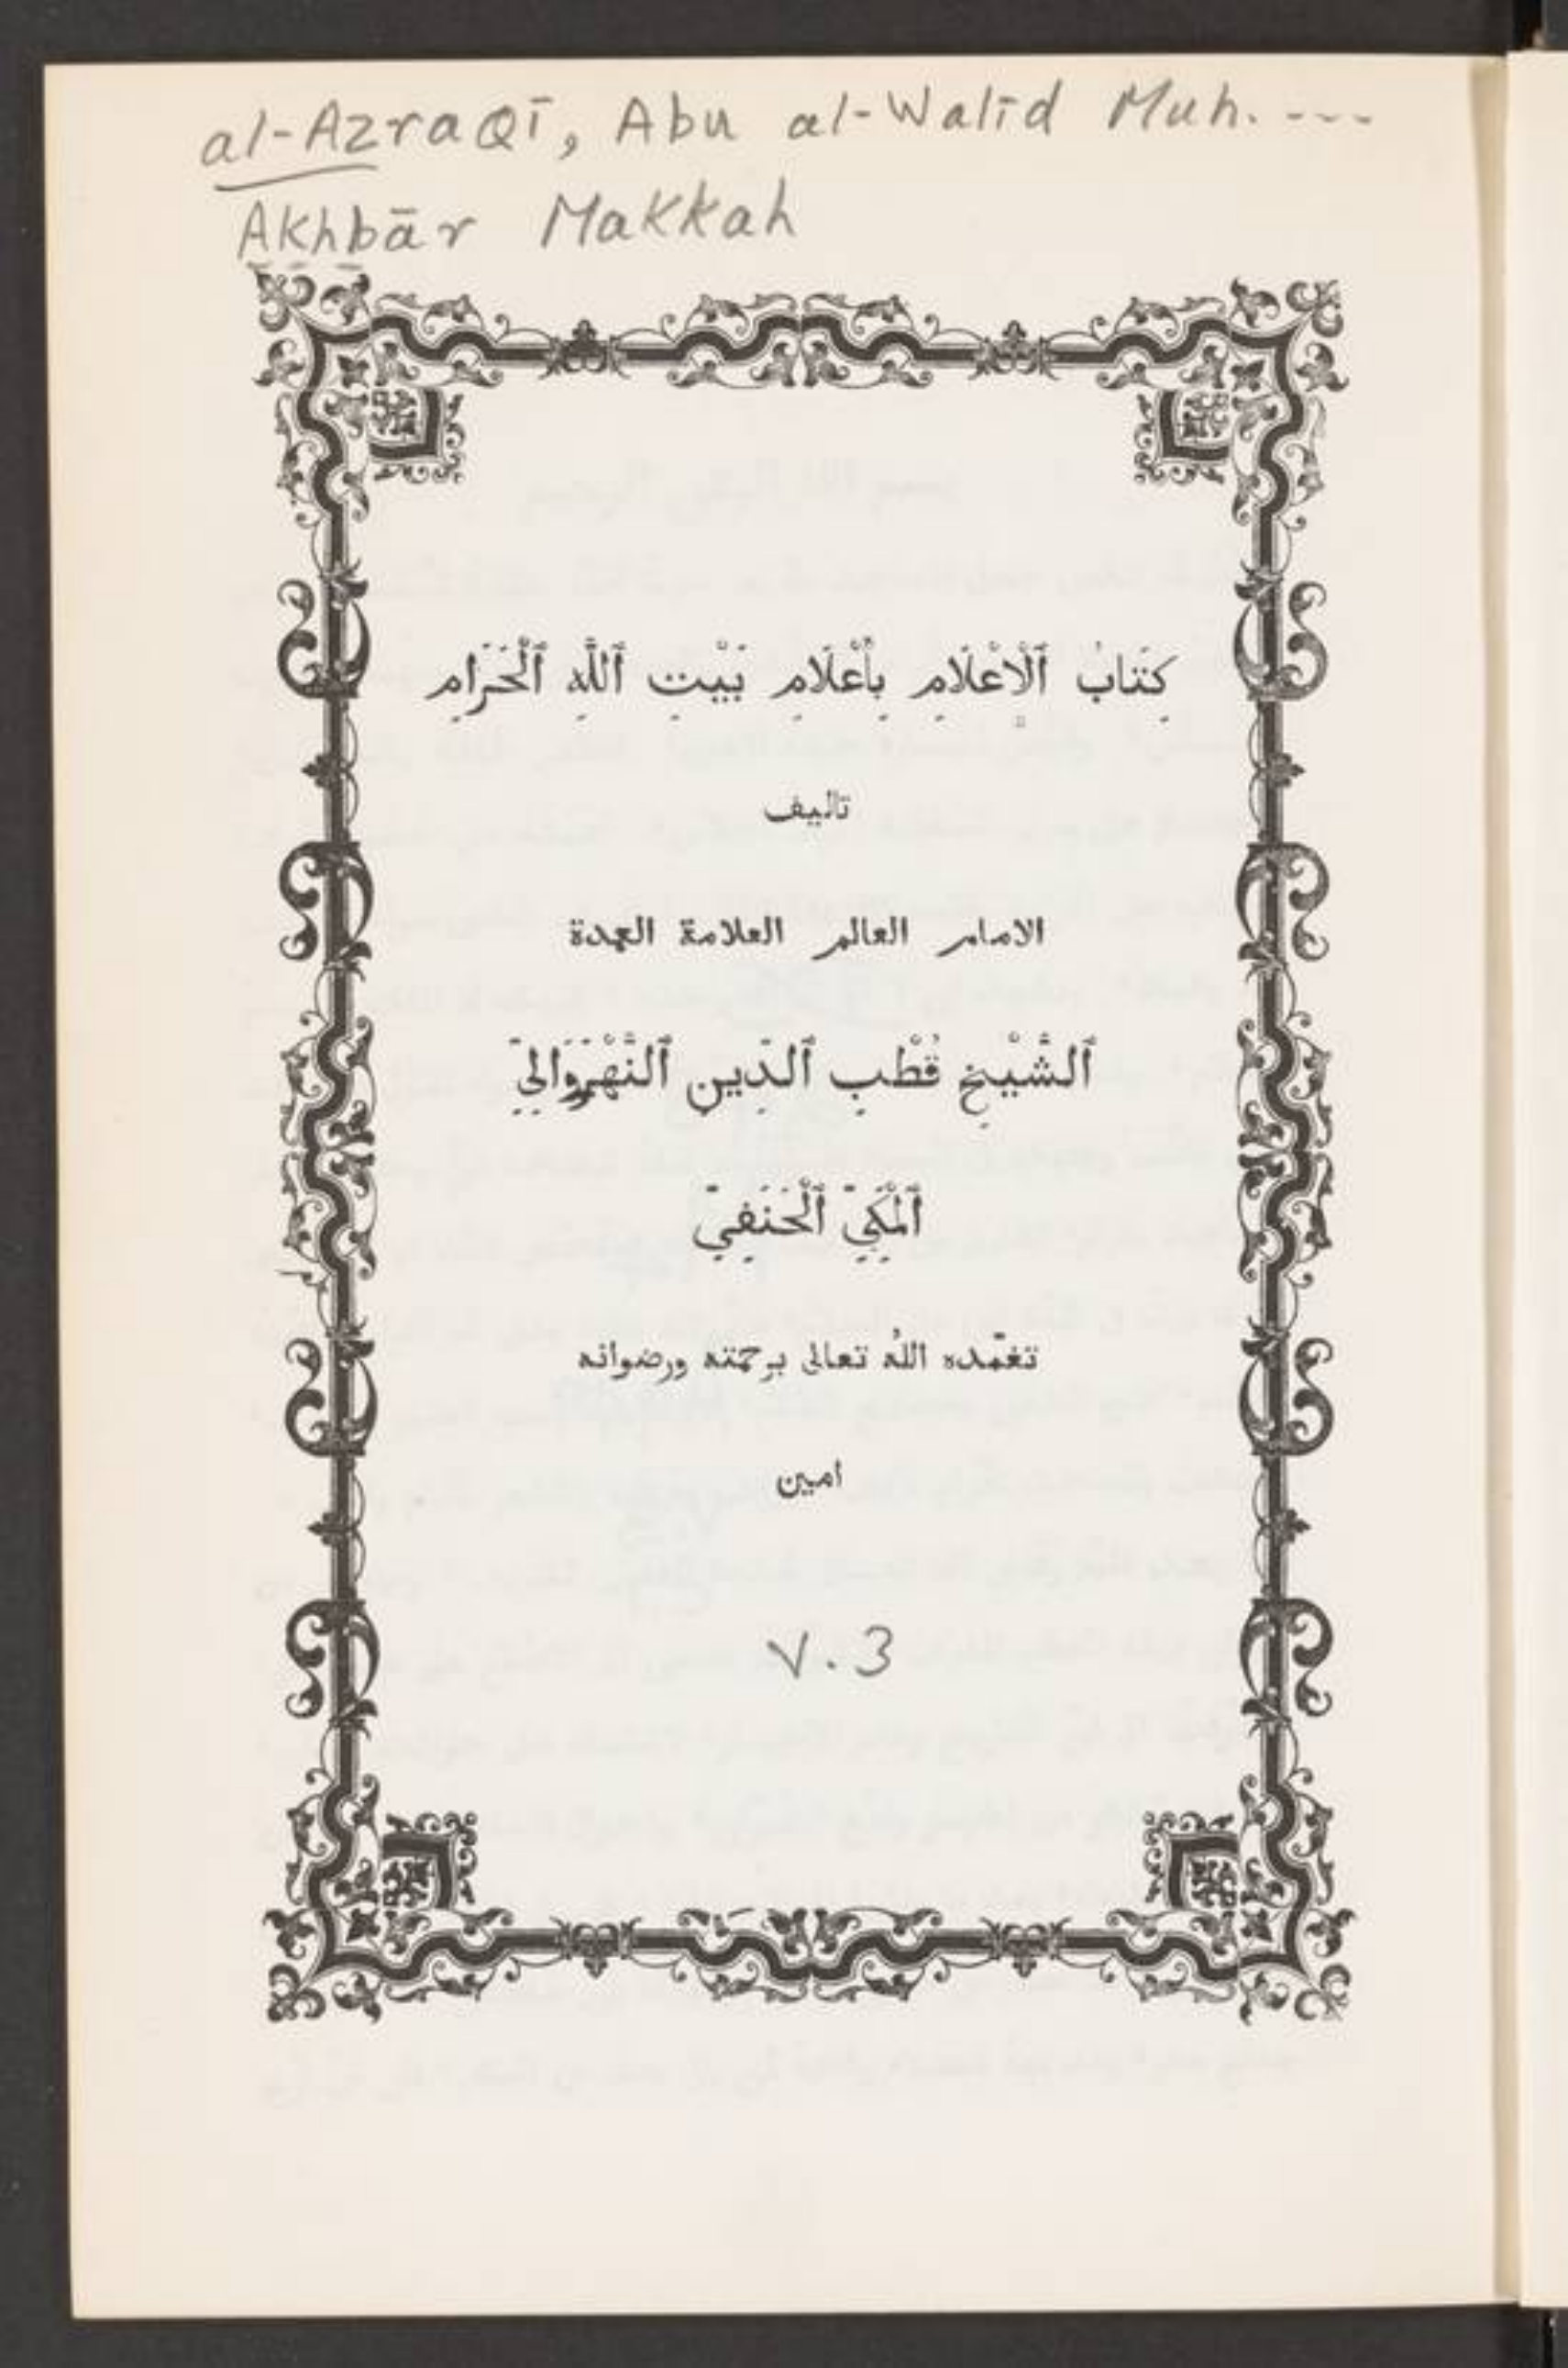 al-Azraqī, Abu al-Walīd Muh. ---
Akhbār Makkah
كِتَابُ ٱلْإعْلَامِ بِأَعْلَامِ بَيْتِ ٱللَّهِ ٱلْحَرَامِ
تاليف
الامام العالم العلامة العمدة
ٱلشَّيْخِ قُطْبِ ٱلدِّينِ ٱلنَّهْرَوَالِيِّ
ٱلْمَكِّيِّ ٱلْحَنَفِيِّ
تغمّده اللهُ تعالى برحمته ورضوانه
امين
V. 3